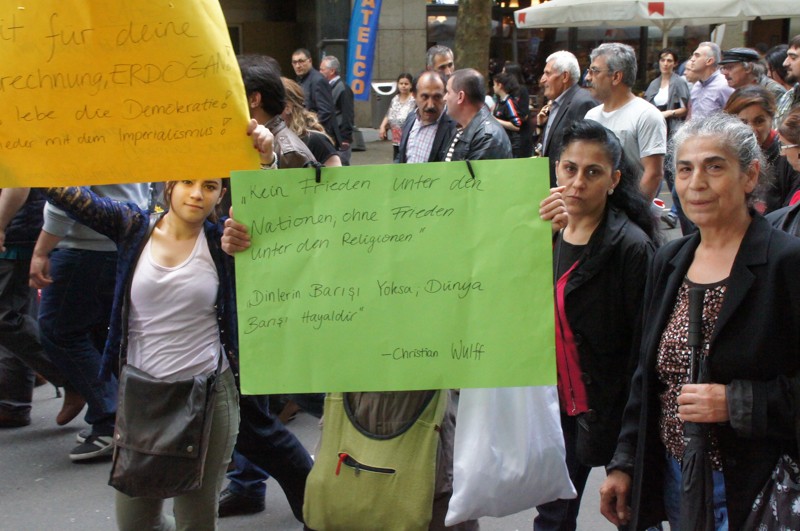 it für deine
rechnung, ERDOĞAN!
lebe die Demokratie!
ieder mit dem Imperialismus!
ATELCO
„Kein Frieden unter den
Nationen, ohne Frieden
unter den Religionen"
„Dinlerin Barışı Yoksa, Dünya
Barışı Hayaldır"
—Christian Wulff